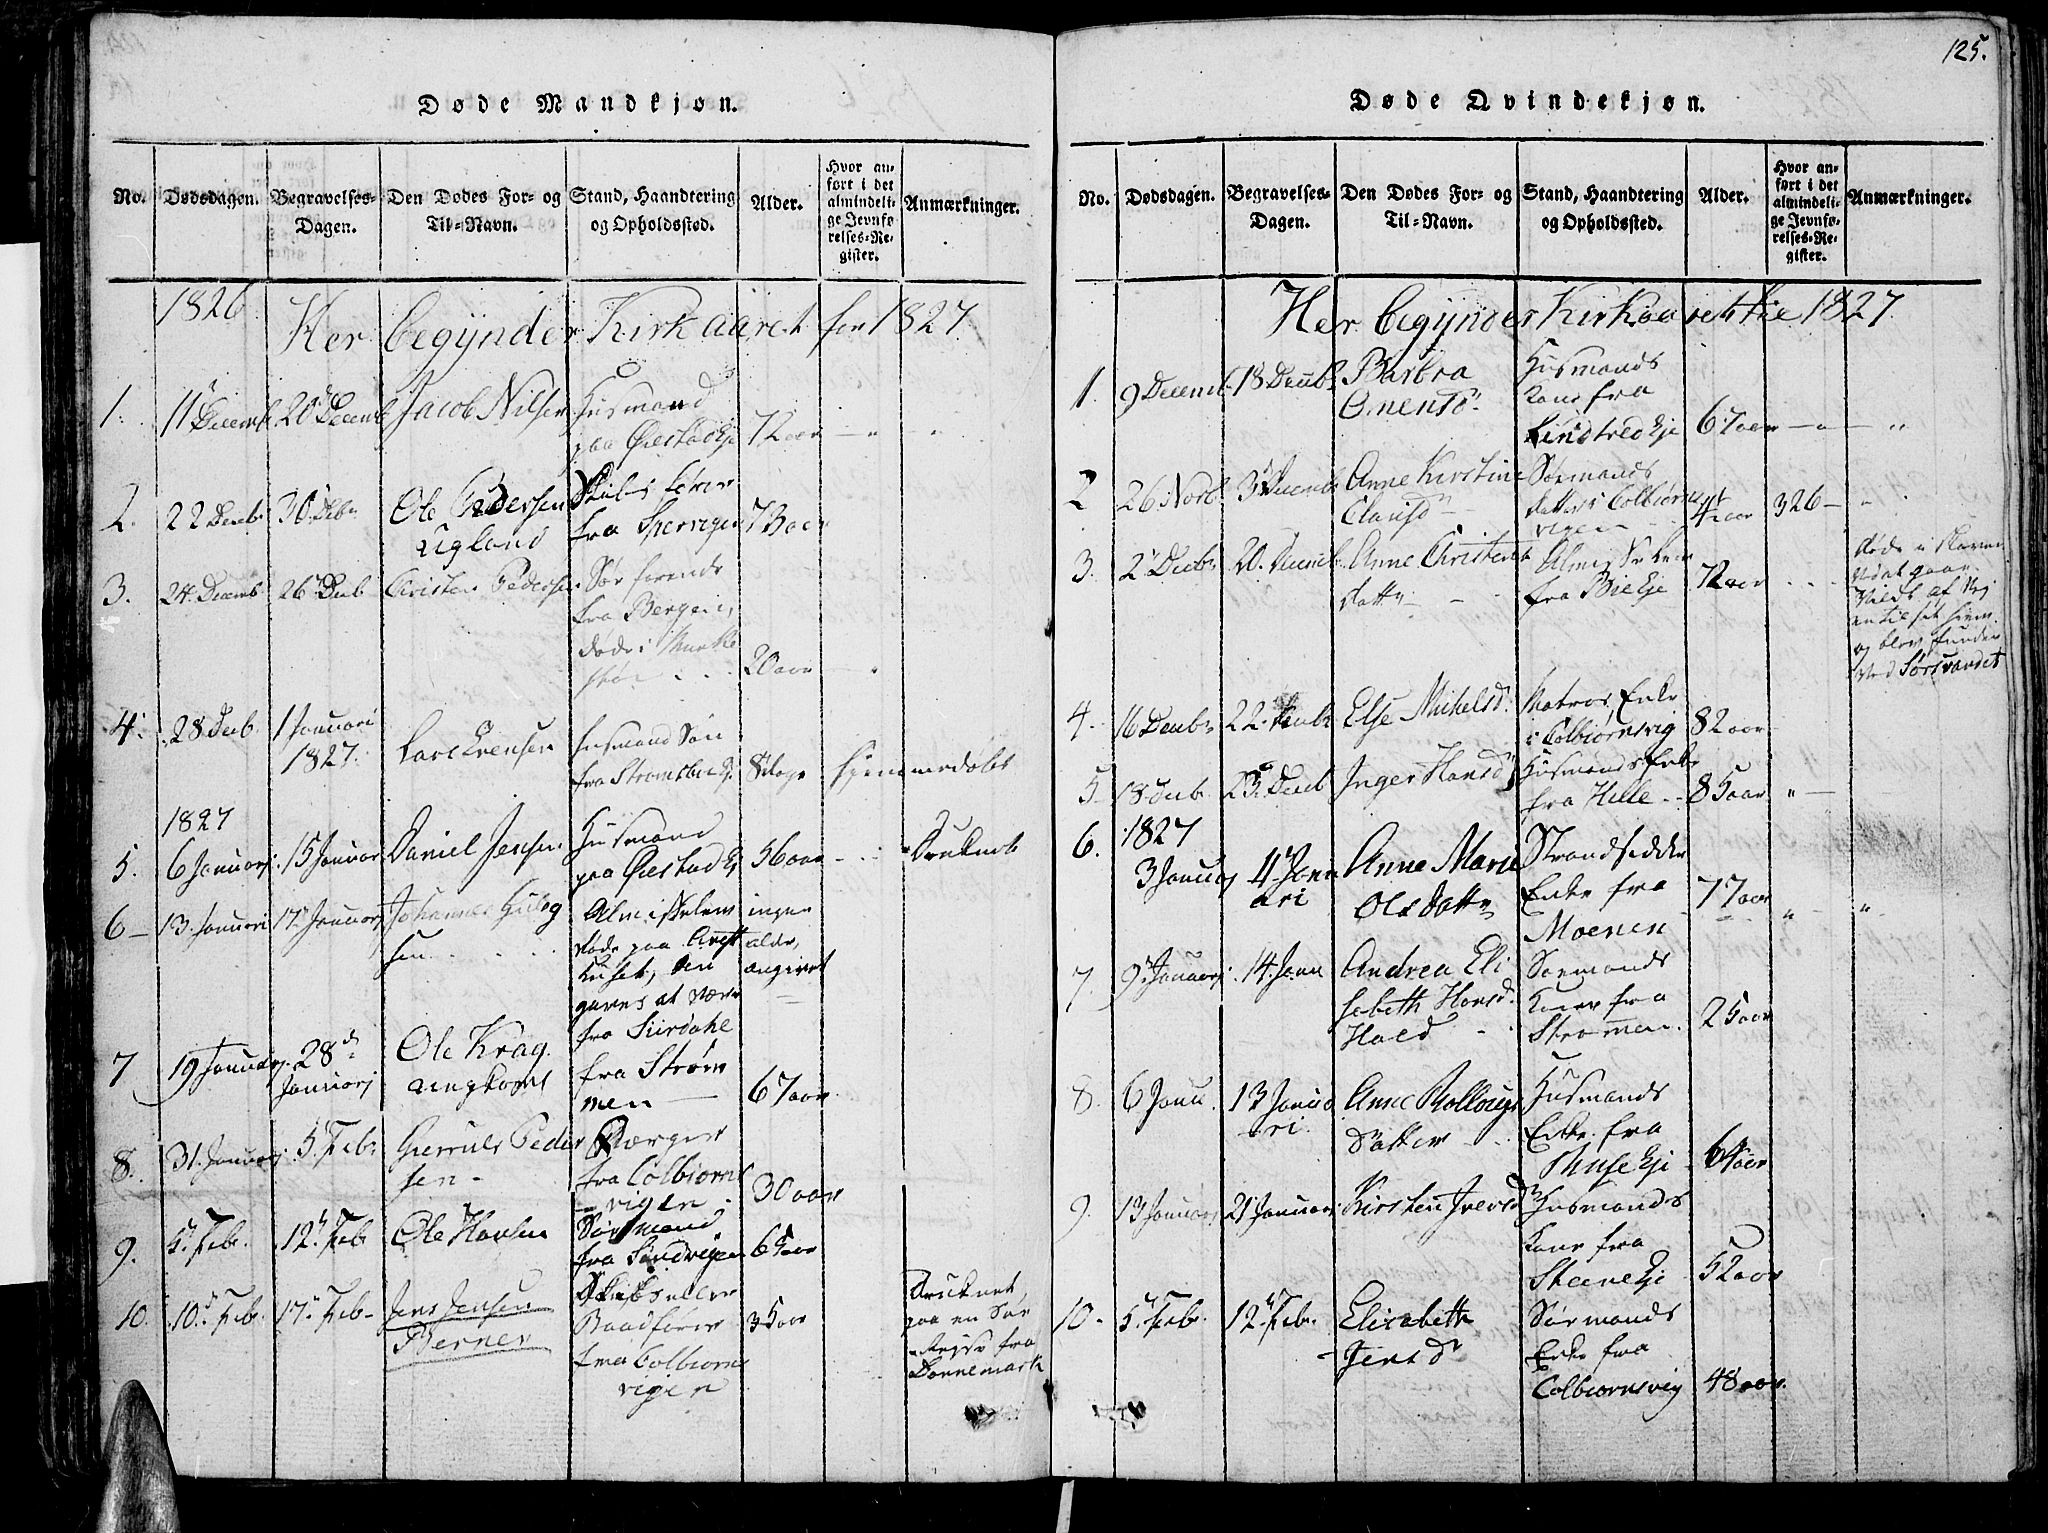 125.
Døde Mandkjøn.
No. Dødsdagen. Begravelses-Dagen. Den Dødes For- og Til-Navn. Stand, Haandtering og Opholdssted. Alder. Hvor anført i det almindelige Jevnførelses-Register. Anmærkninger.
1826
Her begynder Kirkaaret for 1827
1. 11 Decemb 20 Decemb Jacob Nilsen Husmand
paa Øiestad Eje 72 aar
2. 22 Decbr 30 Decbr Ole Pedersen
Ugland
fra Spervigen 73 aar
3. 24 Decemb 26 Decb Christen Pedersen Sørfarende
fra Bergen,
døde i
20 aar
4. 28 Decb 1 Januari
1827. Lars Evensen Husmand Søn
fra Strømsboe Ej. 8 dage hjemmedøbt
1827
5. 6 Januarj 15 Januar Daniel Jensen Husmand
paa Øiestad Ej 56 aar Druknet
6 13 Januari 17 Januarj Johannes
sen Almisselem
døde paa Arest
huset,
gaves at være
fra Siirdahl ingen
alder
angivet
7 19 Januarj. 28de
Januarj Ole Krag
ungkarl fra Strøm
men 67 aar
8. 31. Januarj 5 Febr Gierruls Peder
sen Borger
fra Colbiørns
vigen 30 aar
9. 5 Febr. 12 Feb Ole Hansen Sørmand
fra Sandvigen 65 aar
10. 10de Febr. 17 Feb Jens Jensen
Berner
Baadfører
fra Colbiørns
vigen 35 aar Druknet
paa en Sør
Rejse fra
Dannemark
Døde Qvindekjøn.
No. Dødsdagen. Begravelses-Dagen. Den Dødes For- og Til-Navn. Stand, Haandtering og Opholdssted. Alder. Hvor anført i det almindelige Jevnførelses-Register. Anmærkninger.
Her begynder Kirkaaret 1827
1. 9 Decemb 18 Decbr Barbra
Omensd. Husmands
Kone fra
Lindtved Eje 67 aar
2 26 Novb. 3 Decemb Anne Kirstine
Clausd Sørmands
datter i Colbiørns
vigen 4 aar 326
3. 2 Decbr 20. Decemb Anne Christens
datter Almisselem
fra Bie Eje 72 aar døde i skoven
og blev funden
ved Sørsvandet
4. 16 Decbr 22 Decbr Else Mikelsd. Matros, Enke
i Colbiørnsvig 82 aar
5. 18 Decb 23. Decb Inger Hansd Husmands Enke
fra Hille 85 aar
6. 1827
3 Januarj 4 Janu
ari Anne Marie
Olsdatter Strandsidder
Enke fra
Moenen 77 aar
7. 9 Januarj 14 Janu Andrea Eli
sabeth Hansd.
Hald Sørmands
Kone fra
Strømmen. 25 aar
8. 6 Janu. 13 Janua
ri. Anne
Datter Husmands
Enke fra
Eje 64 aar
9. 13 Januarj 21 Januarj Kirsten Iversd Husmands
Kone fra
Steene Eje 52 aar
10. 5 Febr. 12 Febr. Elisabeth
Jensd Sørmands
Enke fra
Colbiørnsvig 48 aar.